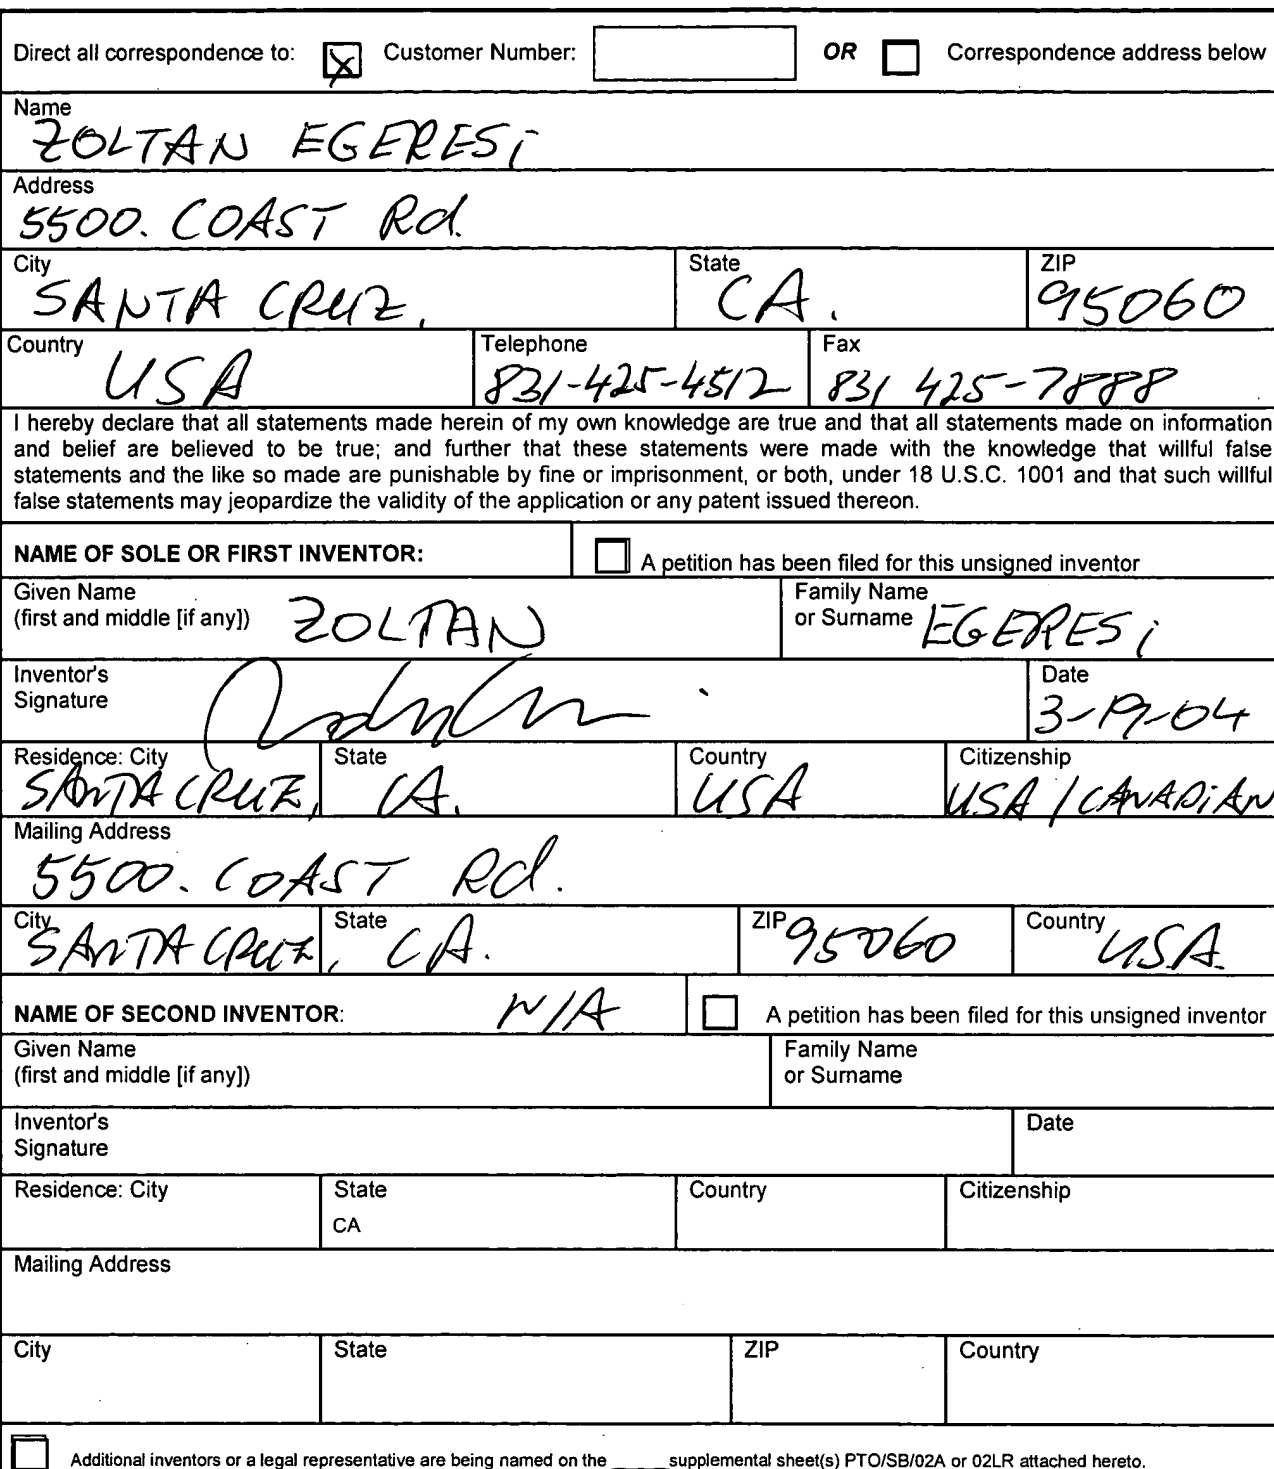 Direct all correspondence to: Customer Number: OR Correspondence address below
Name
ZOLTAN EGERESi
Address
5500. COAST Rd.
City State ZIP
SANTA CRUZ, CA. 95060
Country Telephone Fax
USA 831-425-4512 831 425-7888
I hereby declare that all statements made herein of my own knowledge are true and that all statements made on information
and belief are believed to be true; and further that these statements were made with the knowledge that willful false
statements and the like so made are punishable by fine or imprisonment, or both, under 18 U.S.C. 1001 and that such willful
false statements may jeopardize the validity of the application or any patent issued thereon.
NAME OF SOLE OR FIRST INVENTOR: A petition has been filed for this unsigned inventor
Given Name Family Name
(first and middle [if any]) ZOLTAN or Surname EGERESi
Inventor's Date
Signature 3-19-04
Residence: City State Country Citizenship
SANTA CRUZ, CA. USA USA / CANADiAN
Mailing Address
5500. COAST Rd.
City State ZIP Country
SANTA CRUZ, CA. 95060 USA.
NAME OF SECOND INVENTOR: N/A A petition has been filed for this unsigned inventor
Given Name Family Name
(first and middle [if any]) or Surname
Inventor's Date
Signature
Residence: City State Country Citizenship
CA
Mailing Address
City State ZIP Country
Additional inventors or a legal representative are being named on the _____supplemental sheet(s) PTO/SB/02A or 02LR attached hereto.